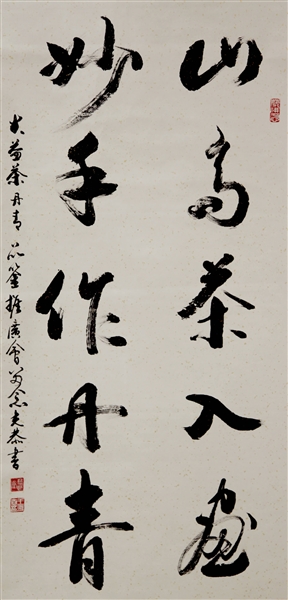 山高茶入画
妙手作丹青
大益茶丹青品鉴推广会留念文恭书